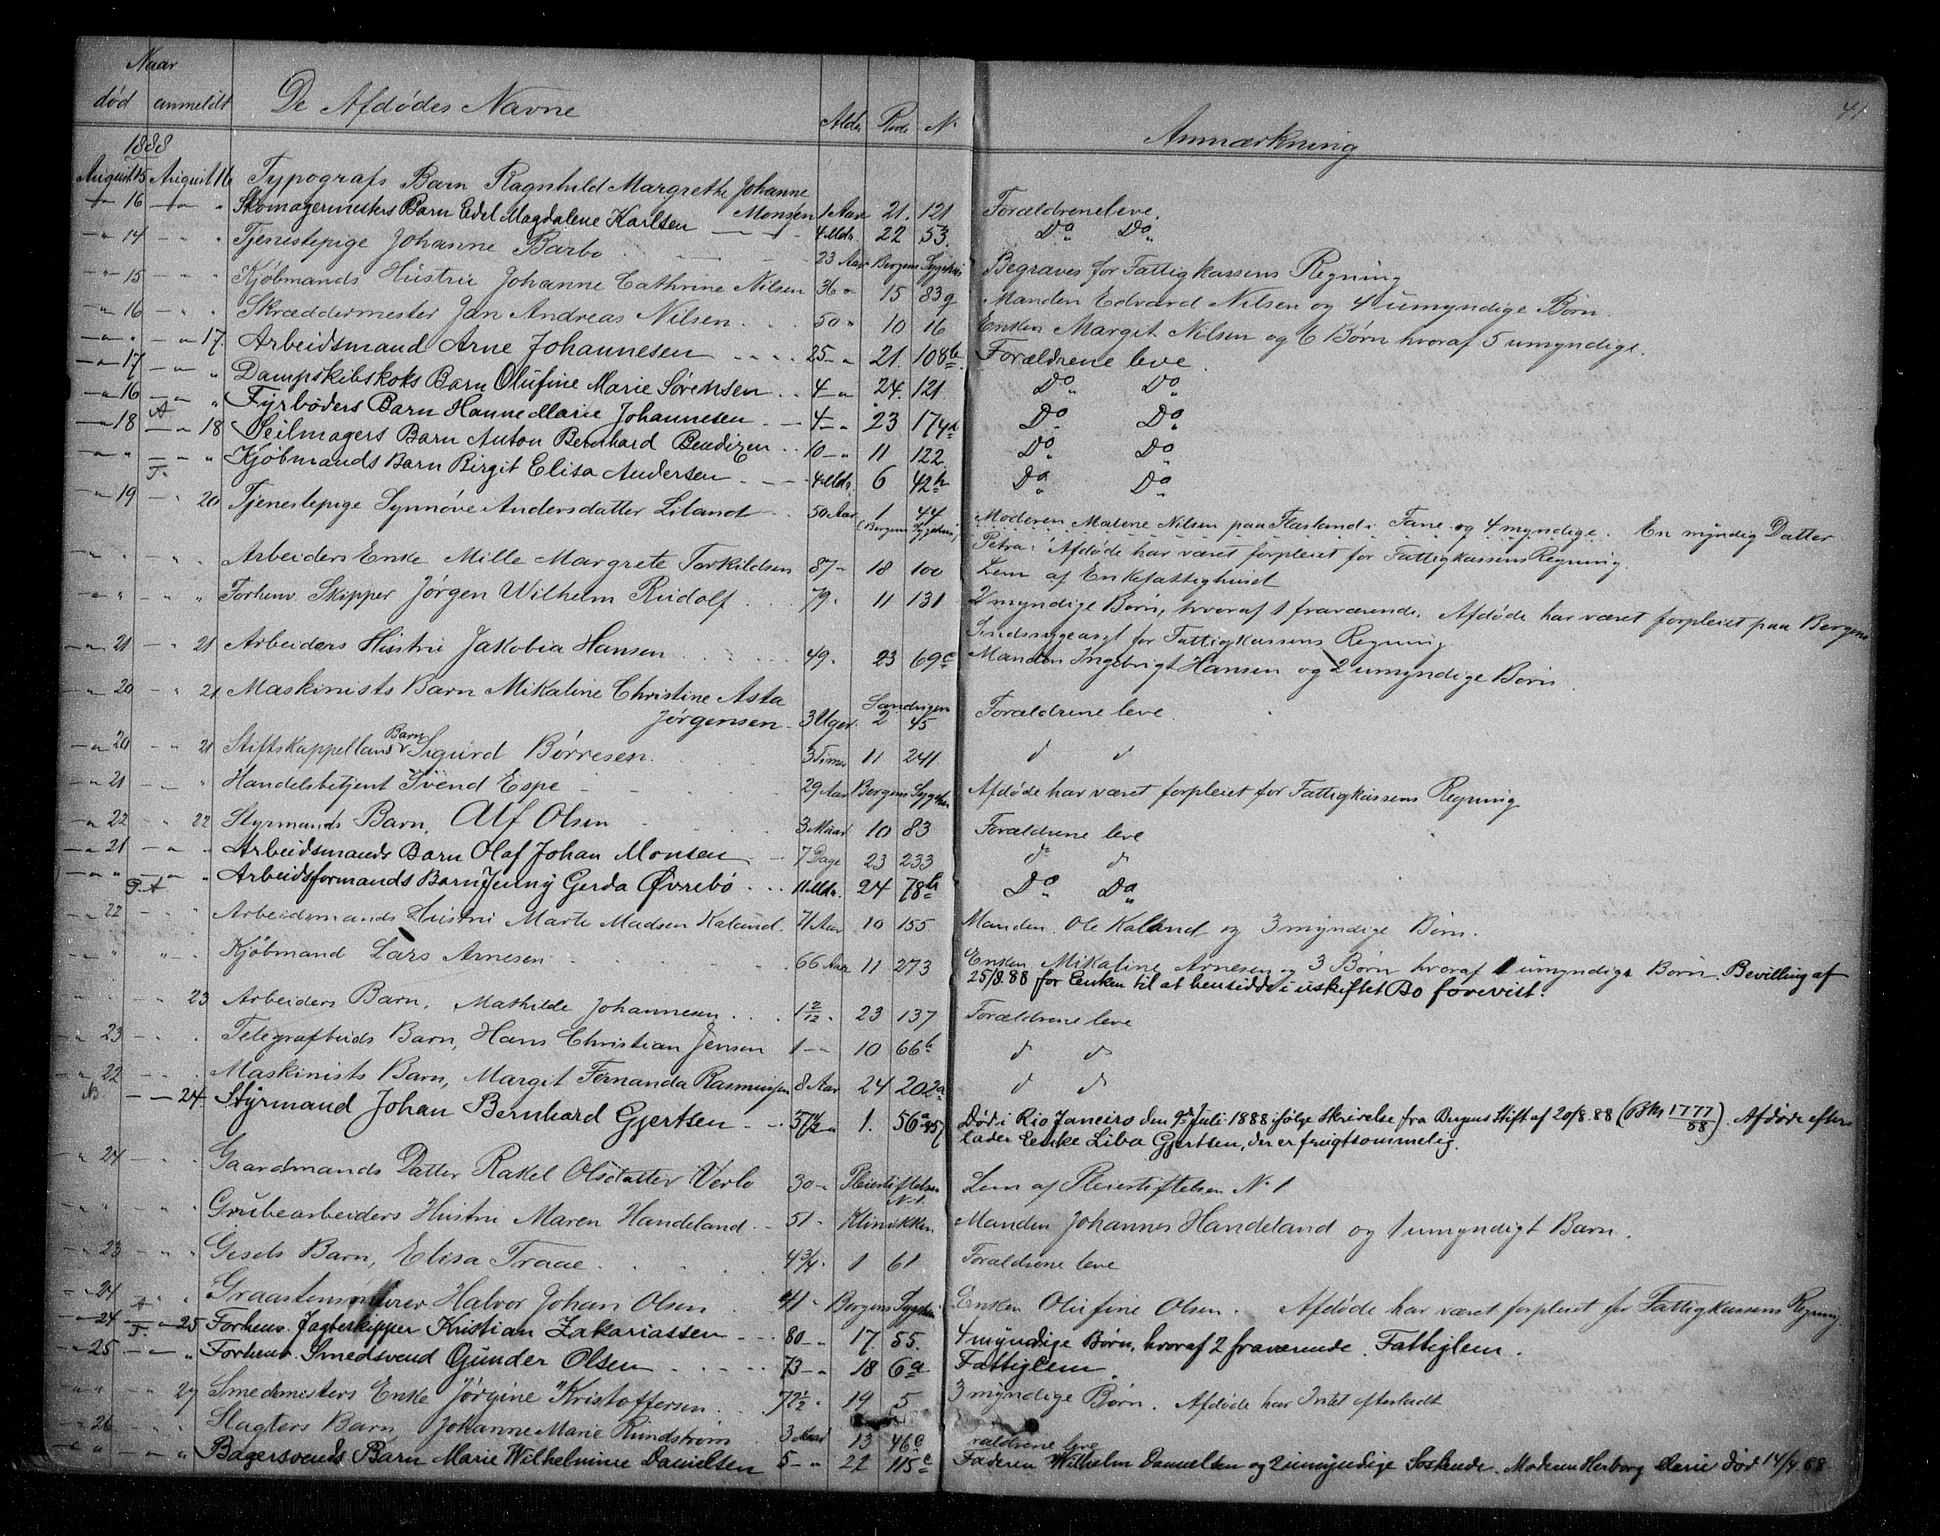 41
Naar
død anmeldt De Afdødes Navne Alder Rode No Anmærkning
1888
August 15 August 16 Typografs Barn Ragnhild Margrethe Johanne
Monsen 1 Aar 21. 121 Forældrene leve.
-"- 16 -"- " Skomagermesters Barn Edel Magdalene Karlsen 4 Mdr. 22 53. Do Do
-"- 14 - " " Tjenestepige Johanne Barbo 23 Aar Bergens Sygehus Begraves for Fattigkassens Regning
-"- 15 - " " Kjøbmands Hustru Johanne Cathrine Nilsen 36 " 15 83g Manden Edvard Nilsen og 4 umyndige Børn.
-"- 16 - " " Skræddermester Jan Andreas Nilsen 50 " 10 16 Enken Margit Nilsen og 6 Børn hvoraf 5 umyndige.
-"- " - " 17. Arbeidsmand Arne Johannesen 25 - " 21. 108b. Forældrene leve.
-"- 17 -"- " Dampskibskoks Barn Olufine Marie Sørensen 4 - " 24. 121 Do Do
-"- 16 -"- " Fyrbøders Barn Hanne Marie Johannesen 4 - " 23 174a Do Do
-"- 18 A -"- 18 Seilmagers Barn Anton Bernhard Bendixen 10 - " 11 122. Do Do
-"- " -"- " Kjøbmands Barn Birgit Elisa Andersen 4 Mdr. 6 42b Do Do
-"- 19 F. - " 20 Tjenestepige Synnøve Andersdatter Liland 50 Aar 1 44 Moderen Malene Nilsen paa Flæsland i Fane og 4 myndige. En myndig Datter
(Bergens Sygehus) Petra. Afdøde har været forpleiet for Fattigkassens Regning.
" " - " " Arbeiders Enke Mille Margrete Torkildsen 87 - 18 100 Lem af Enkefattighuset
-"- " - " " Forhenv. Skipper Jørgen Wilhelm Rudolf 79 " 11 131 2 myndige Børn, hvoraf 1 fraværende. Afdøde har været forpleiet paa Bergens
Sindssygeasyl for Fattigkassens Regning
-"- 21 - " 21 Arbeiders Hustru Jakobia Hansen 49 " 23 69c Manden Ingebrigt Hansen og 2 umyndige Børn.
-"- 20 - " 21 Maskinists Barn Mikaline Christine Asta Sandvigen
Jørgensen 3 Uger. 2 45 Forældrene leve.
-"- 20 - " 21 Stiftskappelland Barn Sigurd Børresen 3 Timer 11 241 d d
-"- 21 - " Handelsbetjent Svend Espe 29 Aar Bergens Sygehus Afdøde har været forpleiet for Fattigkassens Regning
-"- 22 - " 22 Styrmands Barn, Alf Olsen 3 Maar 10 83 Forældrene leve
-"- 21 - " " Arbeidsmands Barn Olaf Johan Monsen 7 Dage 23 233 do d
-"- " -"- " Arbeidsformands Barn Jenny Gerda Øvrebø 11 Mdr. 24 78b Do Do
-"- 22 - " " Arbeidsmands Hustru Marte Madsen Kaland. 71 Aar 10 155 Manden Ole Kaland og 3 myndige Børn.
" " " " Kjøbmand Lars Arnesen 66 Aar 11 273 Enken Mikaline Arnesen og 3 Børn hvoraf 1 umyndige Børn. Bevilling af
25/8.88 for Enken til at hensidde i uskiftet Bo forevist.
" " - " 23 Arbeiders Barn, Mathilde Johannesen 1 2/12 " 23 137 Forældrene leve
-"- 23 - " Telegrafbuds Barn, Hans Christian Jensen 1 - - 10 66b d d
-"- 22 - " Maskinists Barn, Margit Fernanda Rasmussen 8 Aar 24 202a d d
- - 24. Styrmand Johan Bernhard Gjertsen 57 1/2 " 1. 56a Død i Rio Janeiro den 9de Juli 1888 ifølge Skrivelse fra Bergens Stift af 20/8.88 (Bks 1777/88). Afdøde efter
lader Enke Liba Gjertsen, der er frugtsommelig.
-"- 24 - " Gaardmands Datter Rakel Olsdatter Verlo 30 - Pleiestiftelsen No. 1. Lem af Pleiestiftelsen No 1
-"- " - " " Grubearbeiders Hustru Maren Handeland 51 " Klinikken Manden Johannes Handeland og 1 umyndigt Barn.
-"- 23 - " " Gjsels Barn, Elisa Traae 4 3/4 " 1 61 Forældrene leve
-"- 24 " " Graastensmurer Halvor Johan Olsen 41 " Bergens Sygehus Enken Olufine Olsen. Afdøde har været forpleiet for Fattigkassens Regning
-"- 24 - 25 Forhenv. Jagteskipper Kristian Zakariassen 80 - " 17. 55. 4 myndige Børn, hvoraf 2 fraværende. Fattiglem.
-"- 25 -"- " Forhenv. Smedsvend Gunder Olsen 73 - " 18 6a Fattiglem.
-"- " - " 27 Smedmesters Enke Jørgine Kristoffersen 72 1/2 " 19 5 3 myndige Børn. Afdøde har Intet efterladt
-"- 26 - " " Slagters Barn, Johanne Marie Rundstrøm 3 Maar 13 46c rældrene leve
-"- " -"- " Bagersvends Barn Marie Wilhelmine Danielsen 5 - " 22 115c Faderen Wilhelm Danielsen og 2 umyndige Søskende. Moderen Herborg Marie død 14/4.88